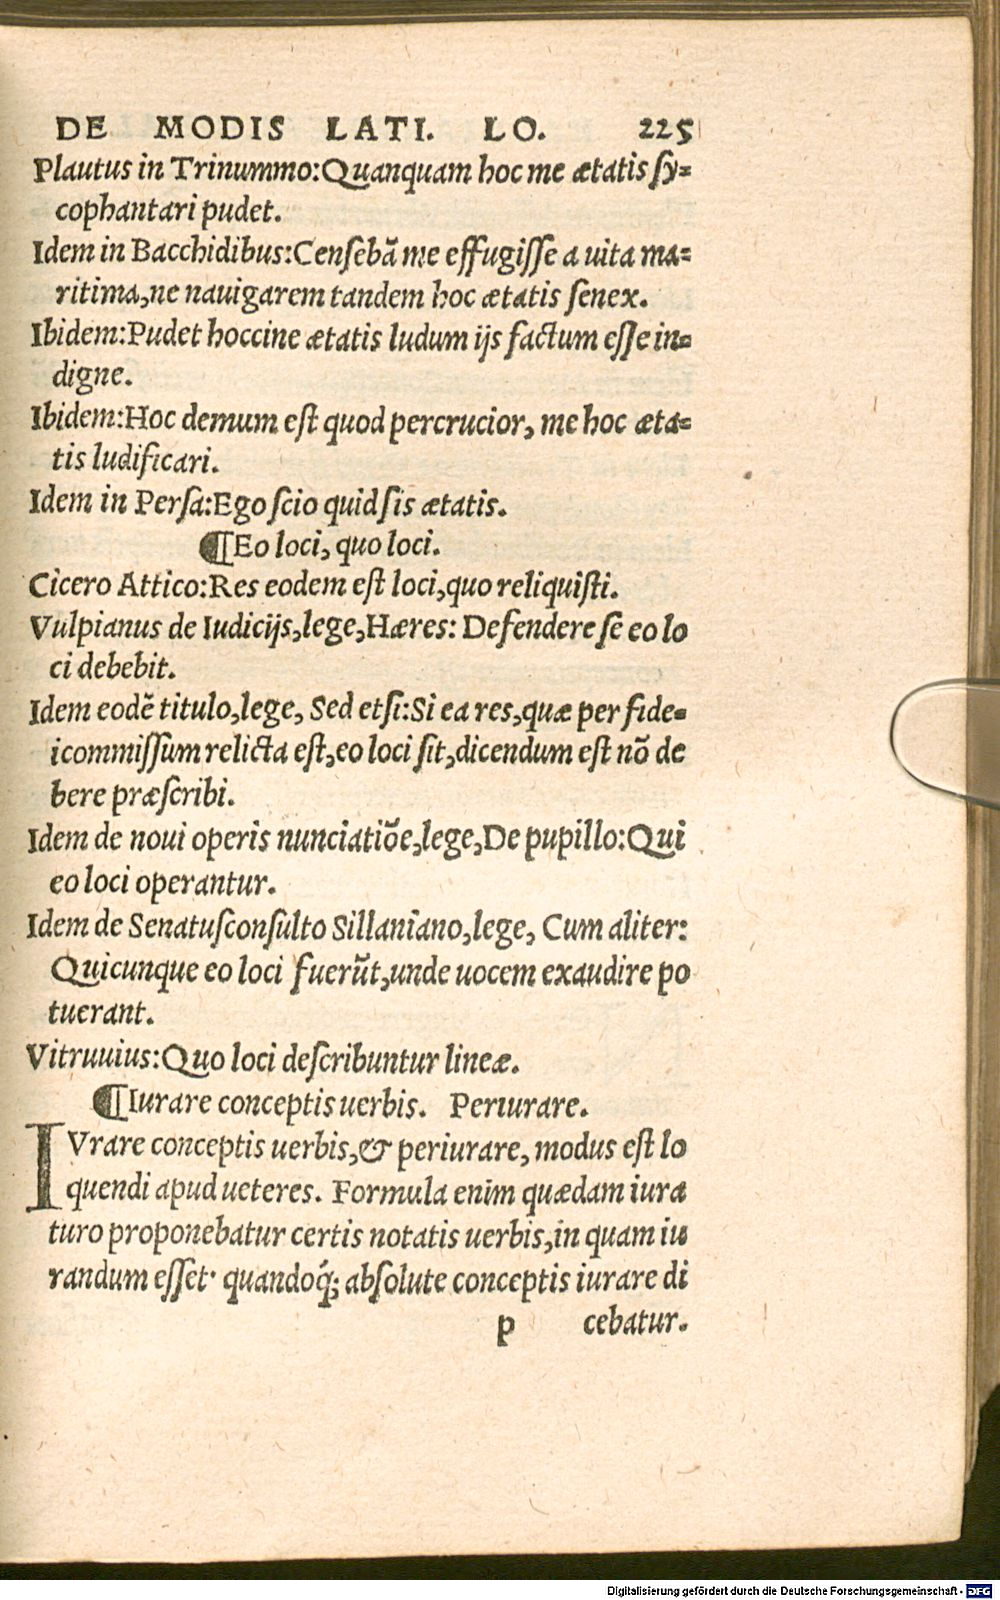 DE MODIS LATI. LO. 225
Plautus in Trinummo:Quanquam hoc me ætatis sy=
cophantari pudet.
Idem in Bacchidibus:Censebã me effugisse a uita ma=
ritima,ne nauigarem tandem hoc ætatis senex.
Ibidem:Pudet hoccine ætatis ludum ijs factum esse in=
digne.
Ibidem:Hoc demum est quod percrucior, me hoc æta=
tis ludificari.
Idem in Persa:Ego scio quid sis ætatis.
¶Eo loci, quo loci.
Cicero Attico:Res eodem est loci,quo reliquisti.
Vulpianus de Iudicijs,lege,Hæres: Defendere se eo lo
ci debebit.
Idem eodẽ titulo,lege, Sed etsi:Si ea res,quæ per fide=
icommissum relicta est,eo loci sit,dicendum est nõ de
bere præscribi.
Idem de noui operis nunciatiõe,lege,De pupillo:Qui
eo loci operantur.
Idem de Senatusconsulto Sillaniano,lege, Cum aliter:
Quicunque eo loci fuerũt,unde uocem exaudire po
tuerant.
Vitruuius:Quo loci describuntur lineæ.
¶Iurare conceptis uerbis. Periurare.
IVrare conceptis uerbis,& periurare, modus est lo
quendi apud ueteres. Formula enim quædam iura
turo proponebatur certis notatis uerbis,in quam iu
randum esset· quandoq́; absolute conceptis iurare di
p cebatur.
Digitalisierung gefördert durch die Deutsche Forschungsgemeinschaft - DFG